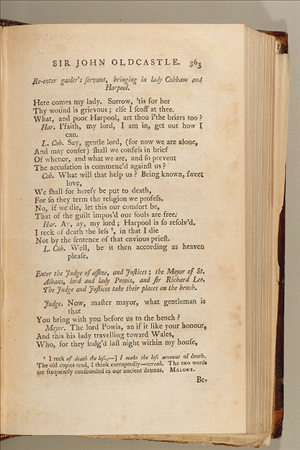 SIR JOHN OLDCASTLE. 363
Re-enter gaoler's ſervant, bringing in lady Cobham and
Harpool.
Here comes my lady. Sorrow, 'tis for her
Thy wound is grievous; elſe I ſcoff at thee.
What, and poor Harpool, art thou i'the briars too?
Har. I'faith, my lord, I am in, get out how I
can.
L. Cob. Say, gentle lord, (for now we are alone,
And may confer) ſhall we confeſs in brief
Of whence, and what we are, and ſo prevent
The accuſation is commenc'd againſt us?
Cob. What will that help us? Being known, ſweet
love,
We ſhall for hereſy be put to death,
For ſo they term the religion we profeſs.
No, if we die, let this our comfort be,
That of the guilt impos'd our ſouls are free.
Har. Ay, ay, my lord; Harpool is ſo reſolv'd.
I reck of death the leſs ', in that I die
Not by the ſentence of that envious prieſt.
L. Cob. Well, be it then according as heaven
pleaſe.
Enter the Judge of aſſize, and Juſtices; the Mayor of St.
Albans, lord and lady Powis, and ſir Richard Lee.
The Judge and Juſtices take their places on the bench.
Judge. Now, maſter mayor, what gentleman is
that
You bring with you before us to the bench?
Mayor. The lord Powis, an if it like your honour,
And this his lady travelling toward Wales,
Who, for they lodg'd laſt night within my houſe,
' I reck of death the leſs,—] I make the leſs account of death.
The old copies read, I think corruptedly—wreak. The two words
are frequently confounded in our ancient dramas. MALONE.
Be-